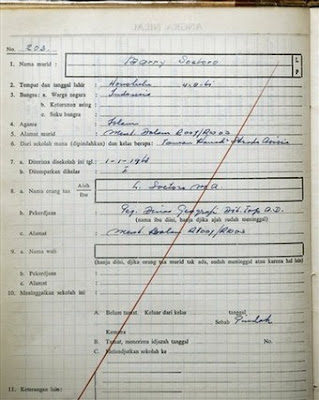 No. 203
1. Nama murid : Barry Soetoro L P
2. Tempat dan tanggal lahir : Honolulu 4-8-61
3. Bangsa : a. Warga negara : Indonesia
b. Keturunan asing :
c. Suku bangsa :
4. Agama : Islam
5. Alamat murid : Ment Dalam R001/Rw03
6. Dari sekolah mana (dipindahkan) dan kelas berapa :
7. a. Diterima disekolah ini tgl. : 1-1-1968
b. Ditempatkan dikelas : I
8. a. Nama orang tua Ajah Ibu : L. Soetoro M.A
b. Pekerdjaan : Peg. Dinas Geografi Dit. Top. A.D.
(nama ibu diisi, hanja djika ajah sudah meninggal)
c. Alamat : Ment Dalam R001/Rw03
9. a. Nama wali :
(hanja diisi, djika orang tua murid tak ada, sudah meninggal atau karena hal lain)
b. Pekerdjaan :
c. Alamat :
10. Meninggalkan sekolah ini :
A. Belum tamat. Keluar dari kelas tanggal
Sebab Pindah
Kemana
B. Tamat, menerima idjazah tanggal No.
C. Melandjutkan sekolah ke
11. Keterangan lain :